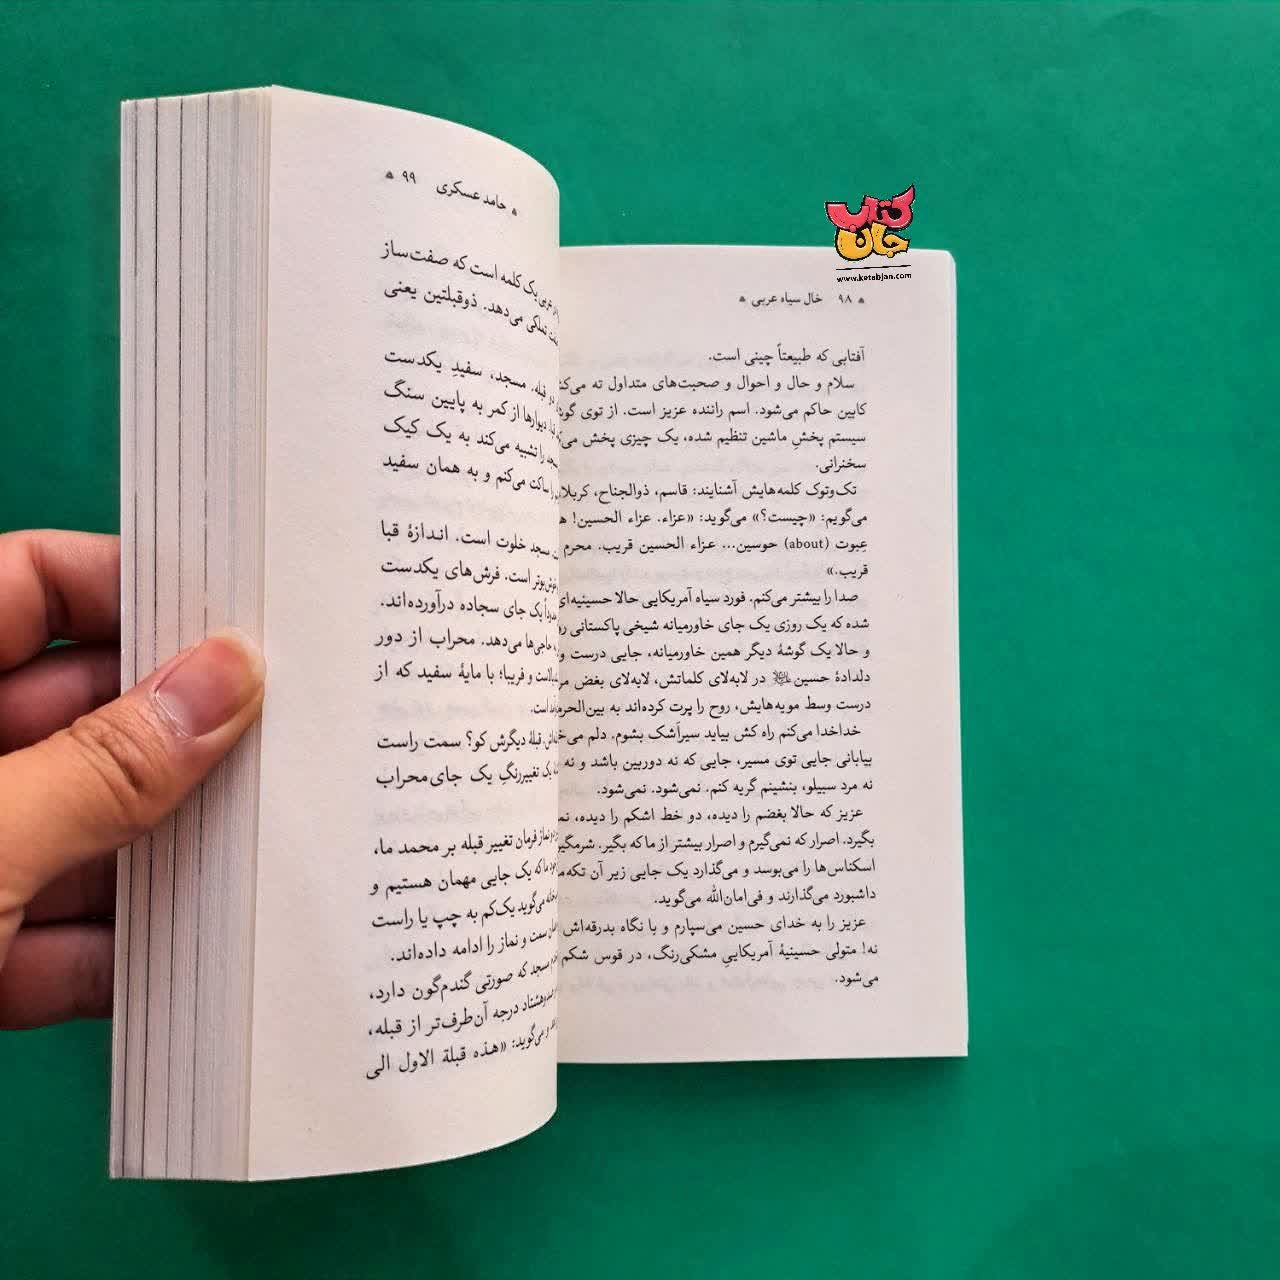 کتاب جان
www.ketabjan.com
۹۸ خال سیاه عربی
آفتابی که طبیعتاً چینی است.
سلام و حال و احوال و صحبت‌های متداول ته می‌کشد
کابین حاکم می‌شود. اسم راننده عزیز است. از توی
سیستم پخشِ ماشین تنظیم شده، یک چیزی پخش
سخنرانی.
تک‌وتوک کلمه‌هایش آشنایند: قاسم، ذوالجناح،
می‌گویم: «چیست؟» می‌گوید: «عزاء. عزاء الحسین!
عِبوت (about) حوسین... عزاء الحسین قریب. محرم
قریب.»
صدا را بیشتر می‌کنم. فورد سیاه آمریکایی حالا حسینیه‌ای
شده که یک روزی یک جای خاورمیانه شیخی پاکستانی
و حالا یک گوشهٔ دیگر همین خاورمیانه، جایی درست
دلدادهٔ حسین در لابه‌لای کلماتش، لابه‌لای بغض
درست وسط مویه‌هایش، روح را پرت کرده‌اند به
خداخدا می‌کنم راه کش بیاید سیراَشک بشوم. دلم
بیابانی جایی توی مسیر، جایی که نه دوربین باشد و نه
نه مرد سبیلو، بنشینم گریه کنم. نمی‌شود. نمی‌شود.
عزیز که حالا بغضم را دیده، دو خط اشکم را دیده،
بگیرد. اصرار که نمی‌گیرم و اصرار بیشتر از ما که بگیر.
اسکناس‌ها را می‌بوسد و می‌گذارد یک جایی زیر آن
داشبورد می‌گذارند و فی‌امان‌الله می‌گوید.
عزیز را به خدای حسین می‌سپارم و با نگاه بدرقه‌اش
نه! متولی حسینیهٔ آمریکاییِ مشکی‌رنگ، در قوس شکم
می‌شود.
حامد عسکری ۹۹
عربی یک کلمه است که صفت‌ساز
تملکی می‌دهد. ذوقبلتین یعنی
قبله. مسجد، سفیدِ یکدست
دیوارها از کمر به پایین سنگ
را تشبیه می‌کند به یک کیک
ساکت می‌کنم و به همان سفید
مسجد خلوت است. اندازهٔ قبا
است. فرش‌های یکدست
یک جای سجاده درآورده‌اند.
حاجی‌ها می‌دهد. محراب از دور
و فریبا؛ با مایهٔ سفید که از
است.
قبلهٔ دیگرش کو؟ سمت راست
یک تغییررنگِ یک جای‌محراب
نماز فرمان تغییر قبله بر محمد ما،
ما که یک جایی مهمان هستیم و
می‌گوید یک‌کم به چپ یا راست
سمت و نماز را ادامه داده‌اند.
مسجد که صورتی گندم‌گون دارد،
درجه آن‌طرف‌تر از قبله،
و می‌گوید: «هذه قبلة الاول الی